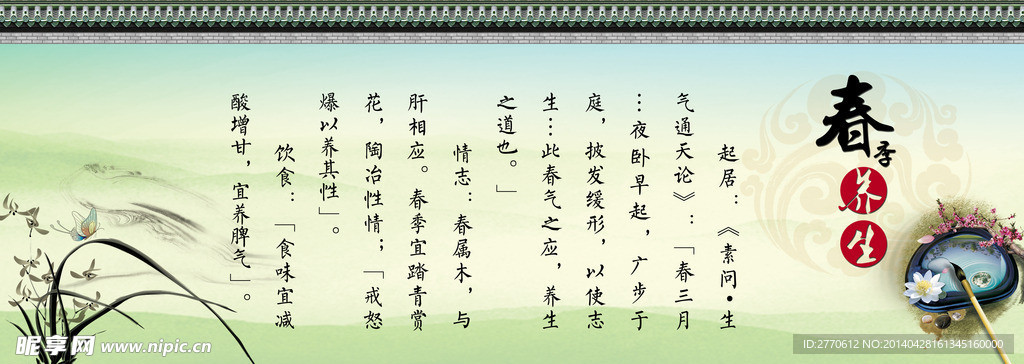 春季
养生
起居：《素问·生
气通天论》：「春三月
…夜卧早起，广步于
庭，披发缓形，以使志
生…此春气之应，养生
之道也。」
情志：春属木，与
肝相应。春季宜踏青赏
花，陶冶性情；「戒怒
爆以养其性」。
饮食：「食味宜减
酸增甘，宜养脾气」。
昵享网 www.nipic.cn
ID:2770612 NO:20140428161345160000